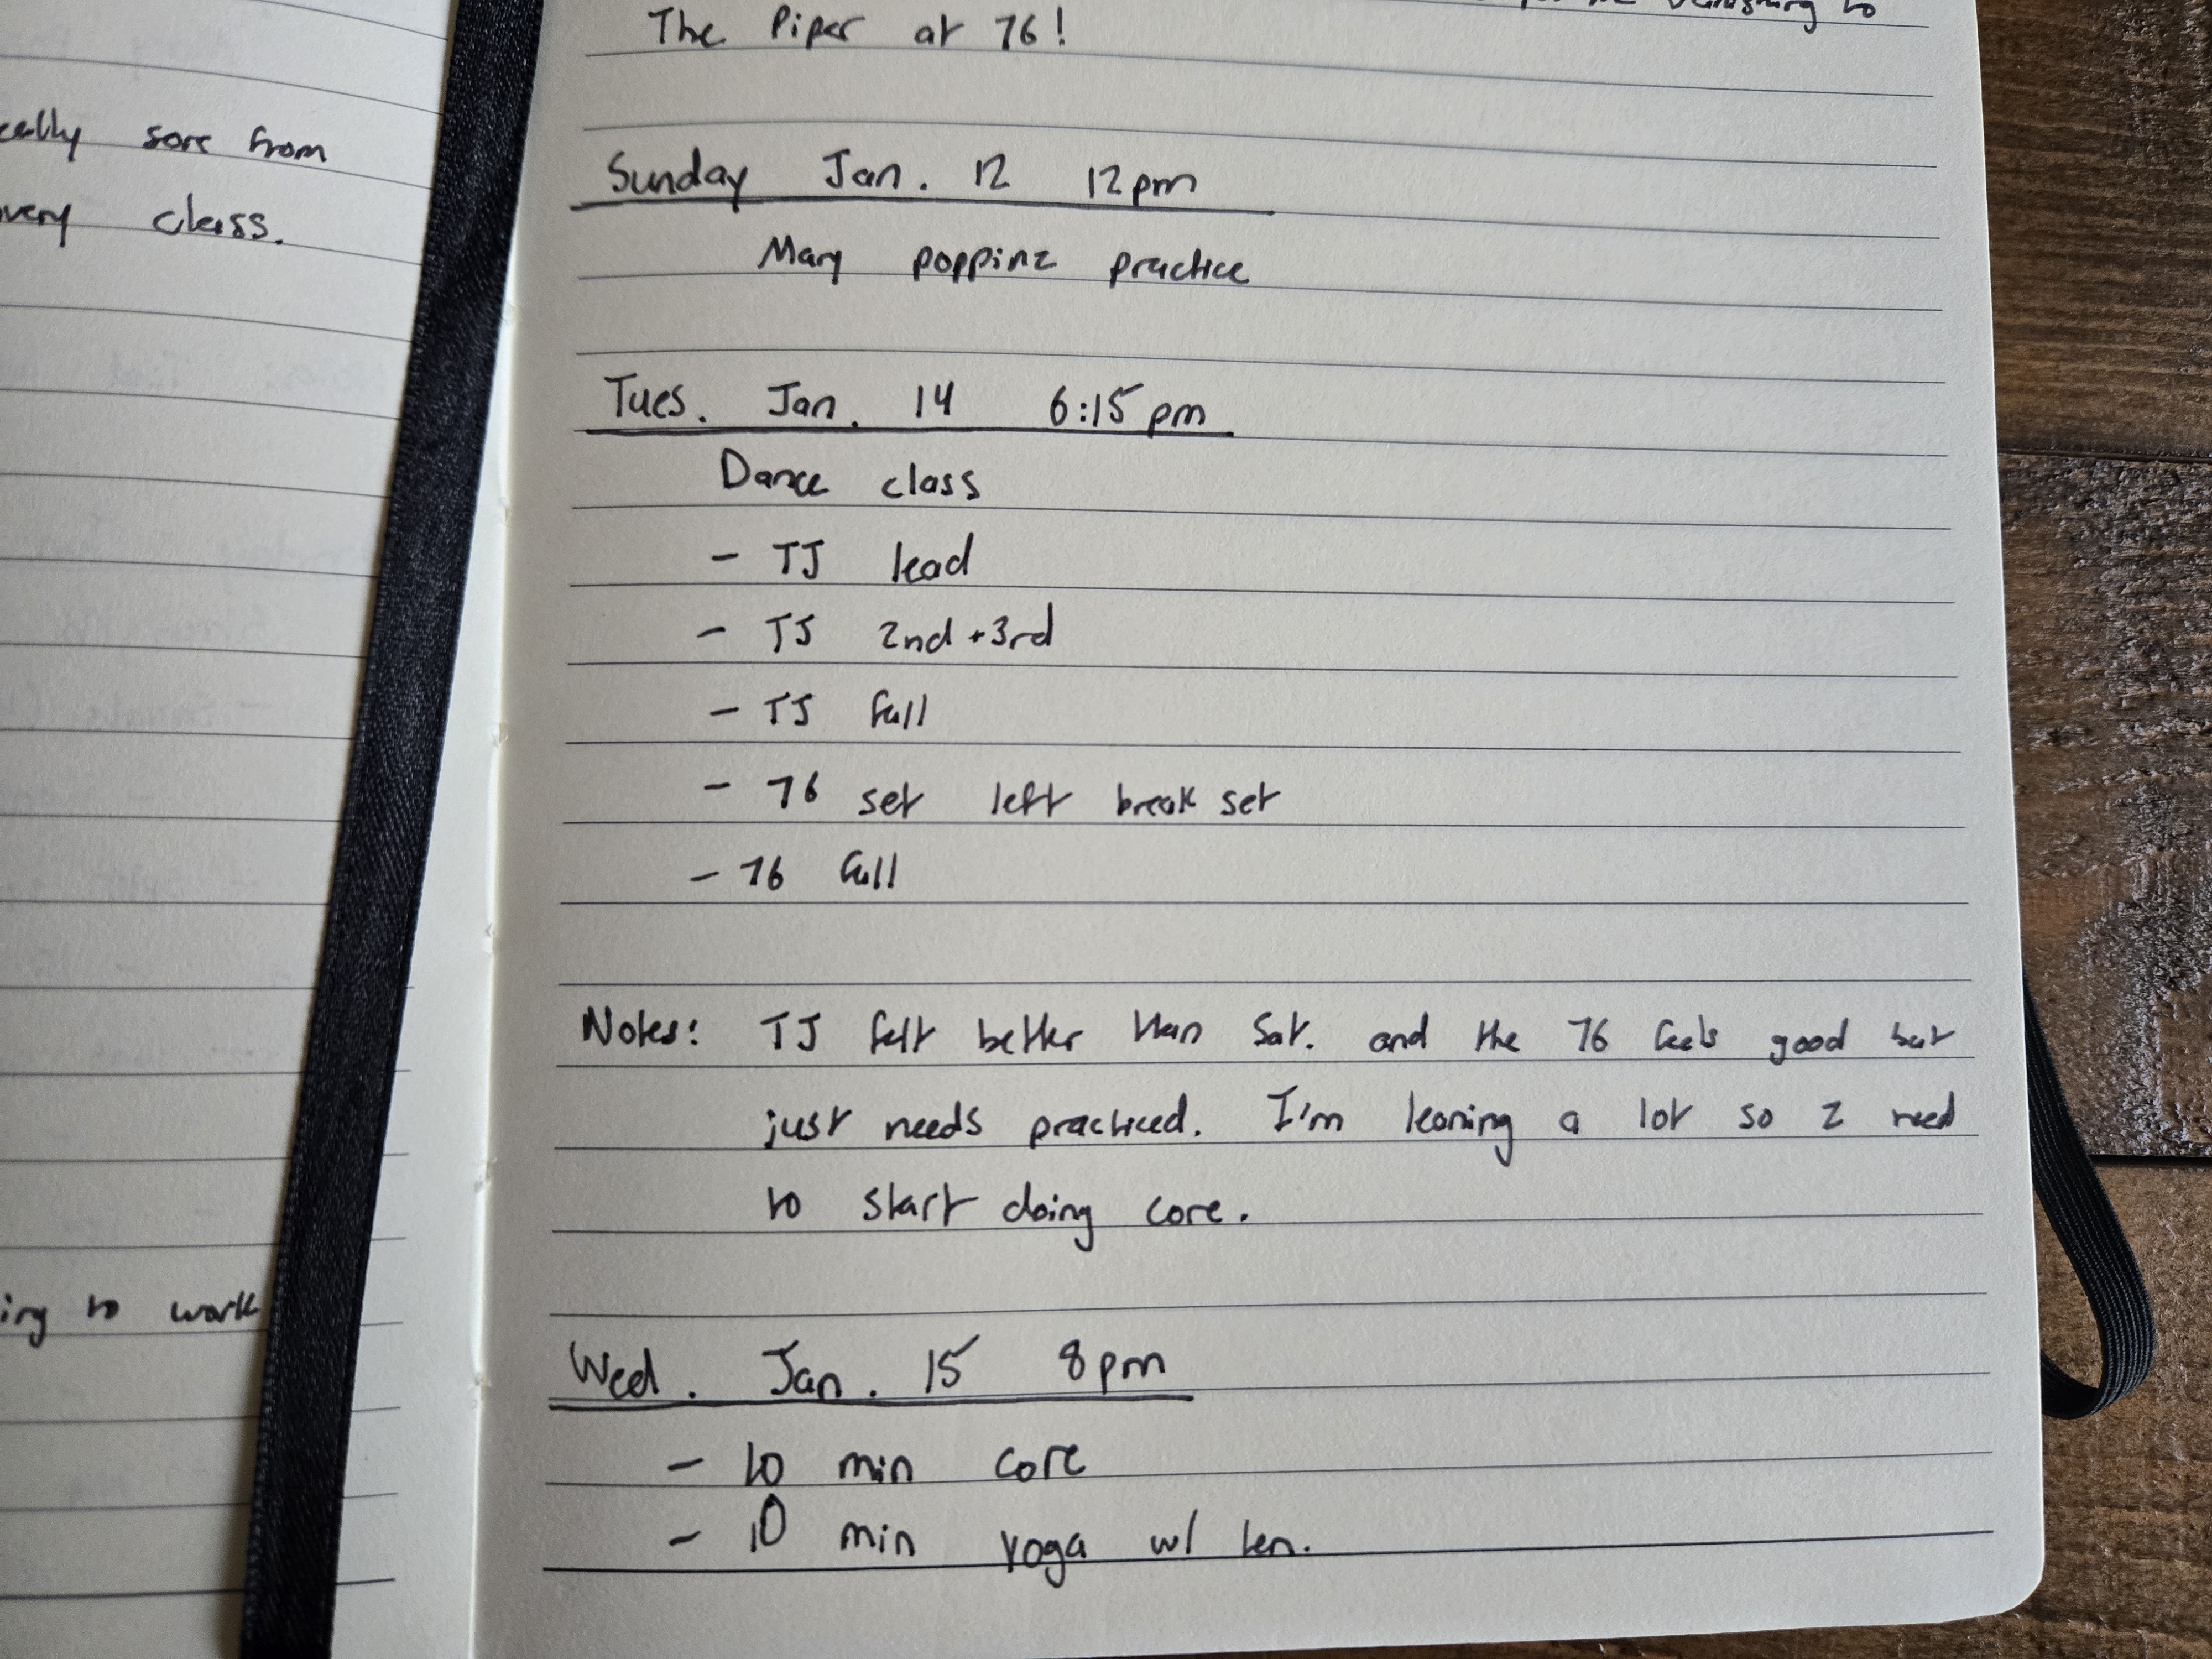 cally sore from
very class.
ing to work
to
The Piper at 76!
Sunday Jan. 12 12pm
Mary poppinz practice
Tues. Jan. 14 6:15pm
Dance class
- TJ lead
- TJ 2nd + 3rd
- TJ full
- 76 set left break set
- 76 full
Notes: TJ felt better than Sat. and the 76 feels good but
just needs practiced. I'm leaning a lot so I need
to start doing core.
Wed. Jan. 15 8pm
- 10 min core
- 10 min yoga w/ ken.